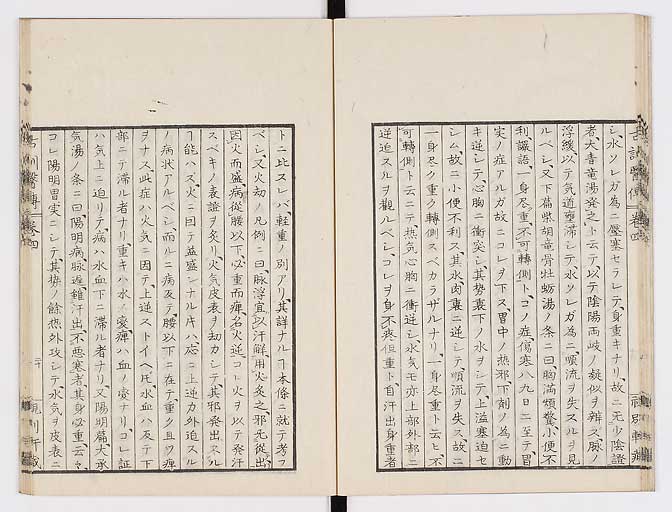 シ、水ソレガ為ニ壅塞セラレテ、身重キナリ、故ニ无少陰證
者大青竜湯発之ト云テ以テ陰陽両岐ノ疑似ヲ辨ス、脉ノ
浮緩以テ気道壅滞シテ、水ソレガ為ニ順流ヲ失スルヲ見
ルベシ、又下篇柴胡竜骨牡蛎湯ノ条ニ曰、胸満煩驚、小便不
利、讝語、一身尽重、不可轉側ト、コノ症、傷寒八九日ニ至テ胃
実ノ症アルガ故ニコレヲ下ス、胃中ノ熱邪下剤ノ為ニ動
キ逆シテ、心胸ニ衝突シ、其勢裏下ノ水ヲシテ、上溢塞迫セ
シム、故ニ小便不利ス、其水肉裏ニ逆シテ、順流ヲ失ス、故ニ
一身尽ク重ク轉側スベカラザルナリ、一身尽重ト云ヒ不
可轉側ト云ニテ、熱気心胸ニ衝逆シ、水気モ亦上部外部ニ
逆迫スルヲ観ルベシ、コレヲ身不疼但重ト、自汗出身重者
トニ比スレバ、軽重ノ別アリ、其詳ナルヿ本條ニ就テ考フ
ベシ、又火劫ノ凡例ニ曰、脉浮宜以汗解、用火灸之、邪无従出、
因火而盛、病従腰以下、必重而痺、名火逆、コレ火ヲ以テ発汗
スベキノ表證ヲ灸リ、火気皮表ヲ劫カシテ、其邪発出スル
ヿ能ハズ、火ニ因テ益盛ンナル片ハ、応ニ上逆力外迫スル
ノ病状アルベシ、而ルニ病反テ腰以下ニ在テ重ク且ツ痺
ヲナス、此症ハ火気ニ因テ、上逆ストイヘ𪜈、水血ハ反テ下
部ニテ滞ル者ナリ、重キハ水ノ変、痺ハ血ノ変ナリ、コレ証
ハ気上ニ迫リテ病ハ水血下ニ滞ル者ナリ、又陽明篇大承
気湯ノ条ニ曰、陽明病、脉遅雖汗出、不悪寒者、其身必重云々、
コレ陽明胃実ニシテ、其熱ノ餘焦外攻シテ、水気ヲ皮表ニ